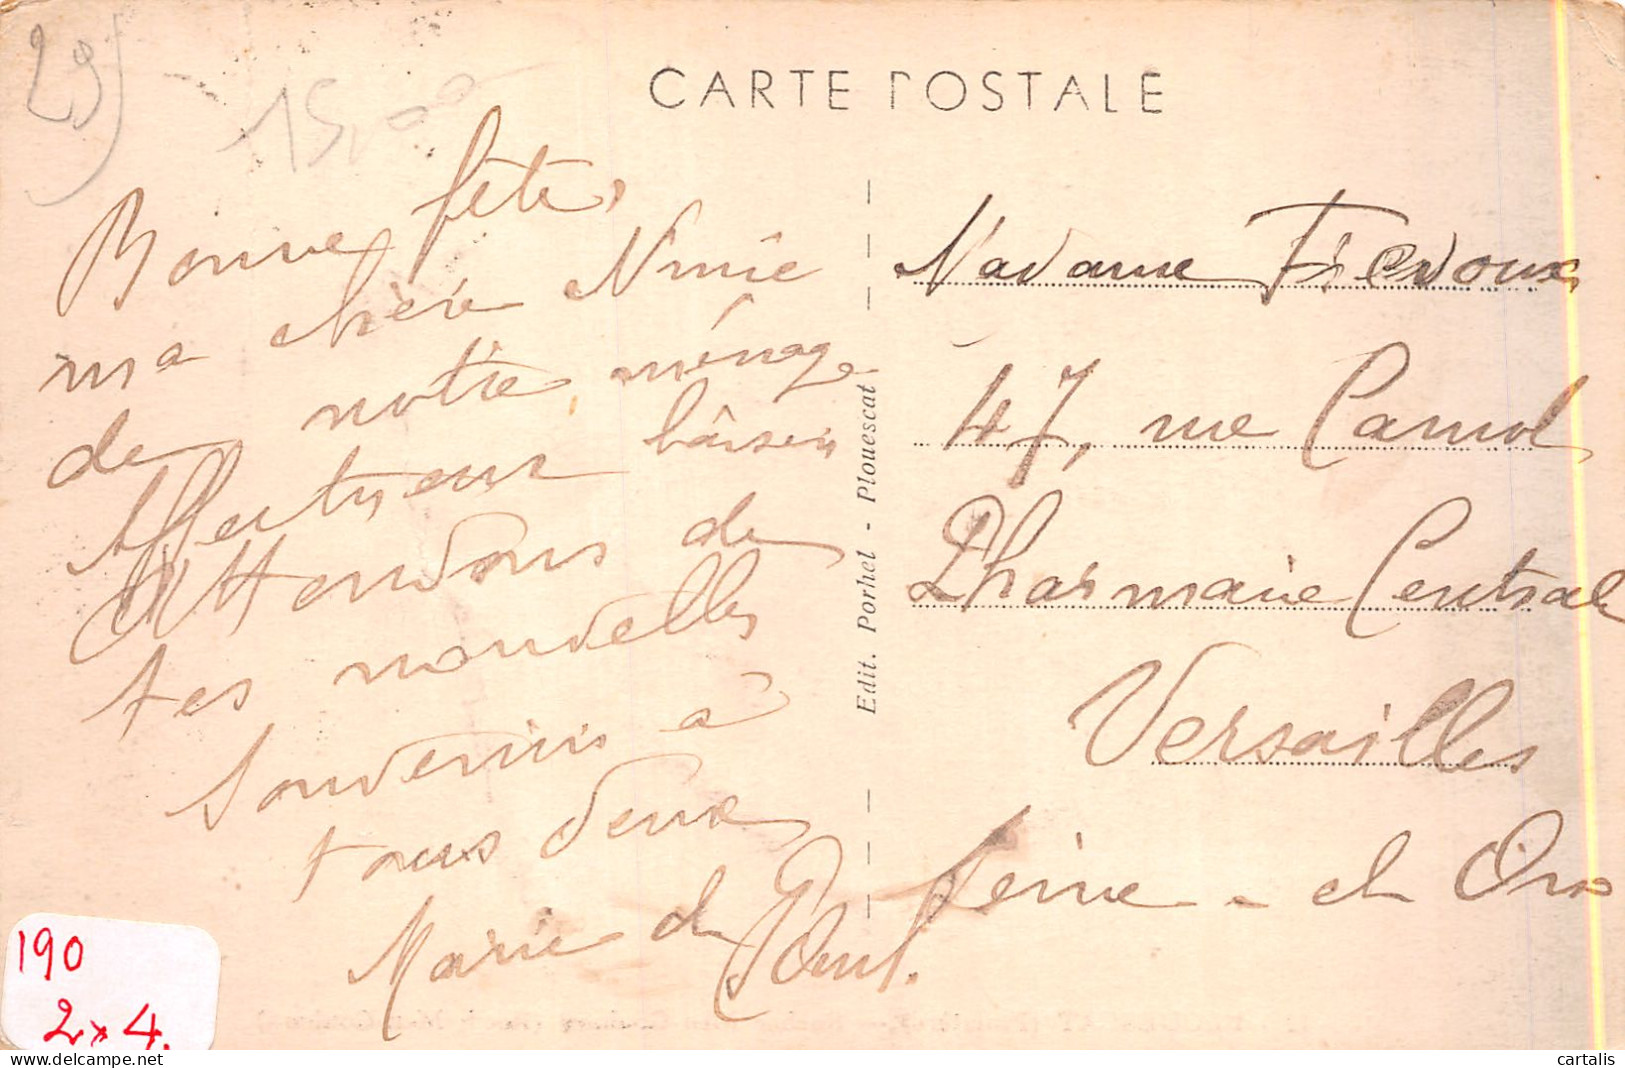 29
15,00
CARTE POSTALE
Bonne fête,
ma chère Ninie
de notre ménage
Affectueux baisers
Attendons de
tes nouvelles
Souvenirs à
tous deux
Marie et Paul.
Edit. Porhel - Plouescat
Madame Frevoux
47, rue Carnot
Pharmacie Centrale
Versailles
Seine-et Oise
190
2x4.
delcampe.net
cartalis